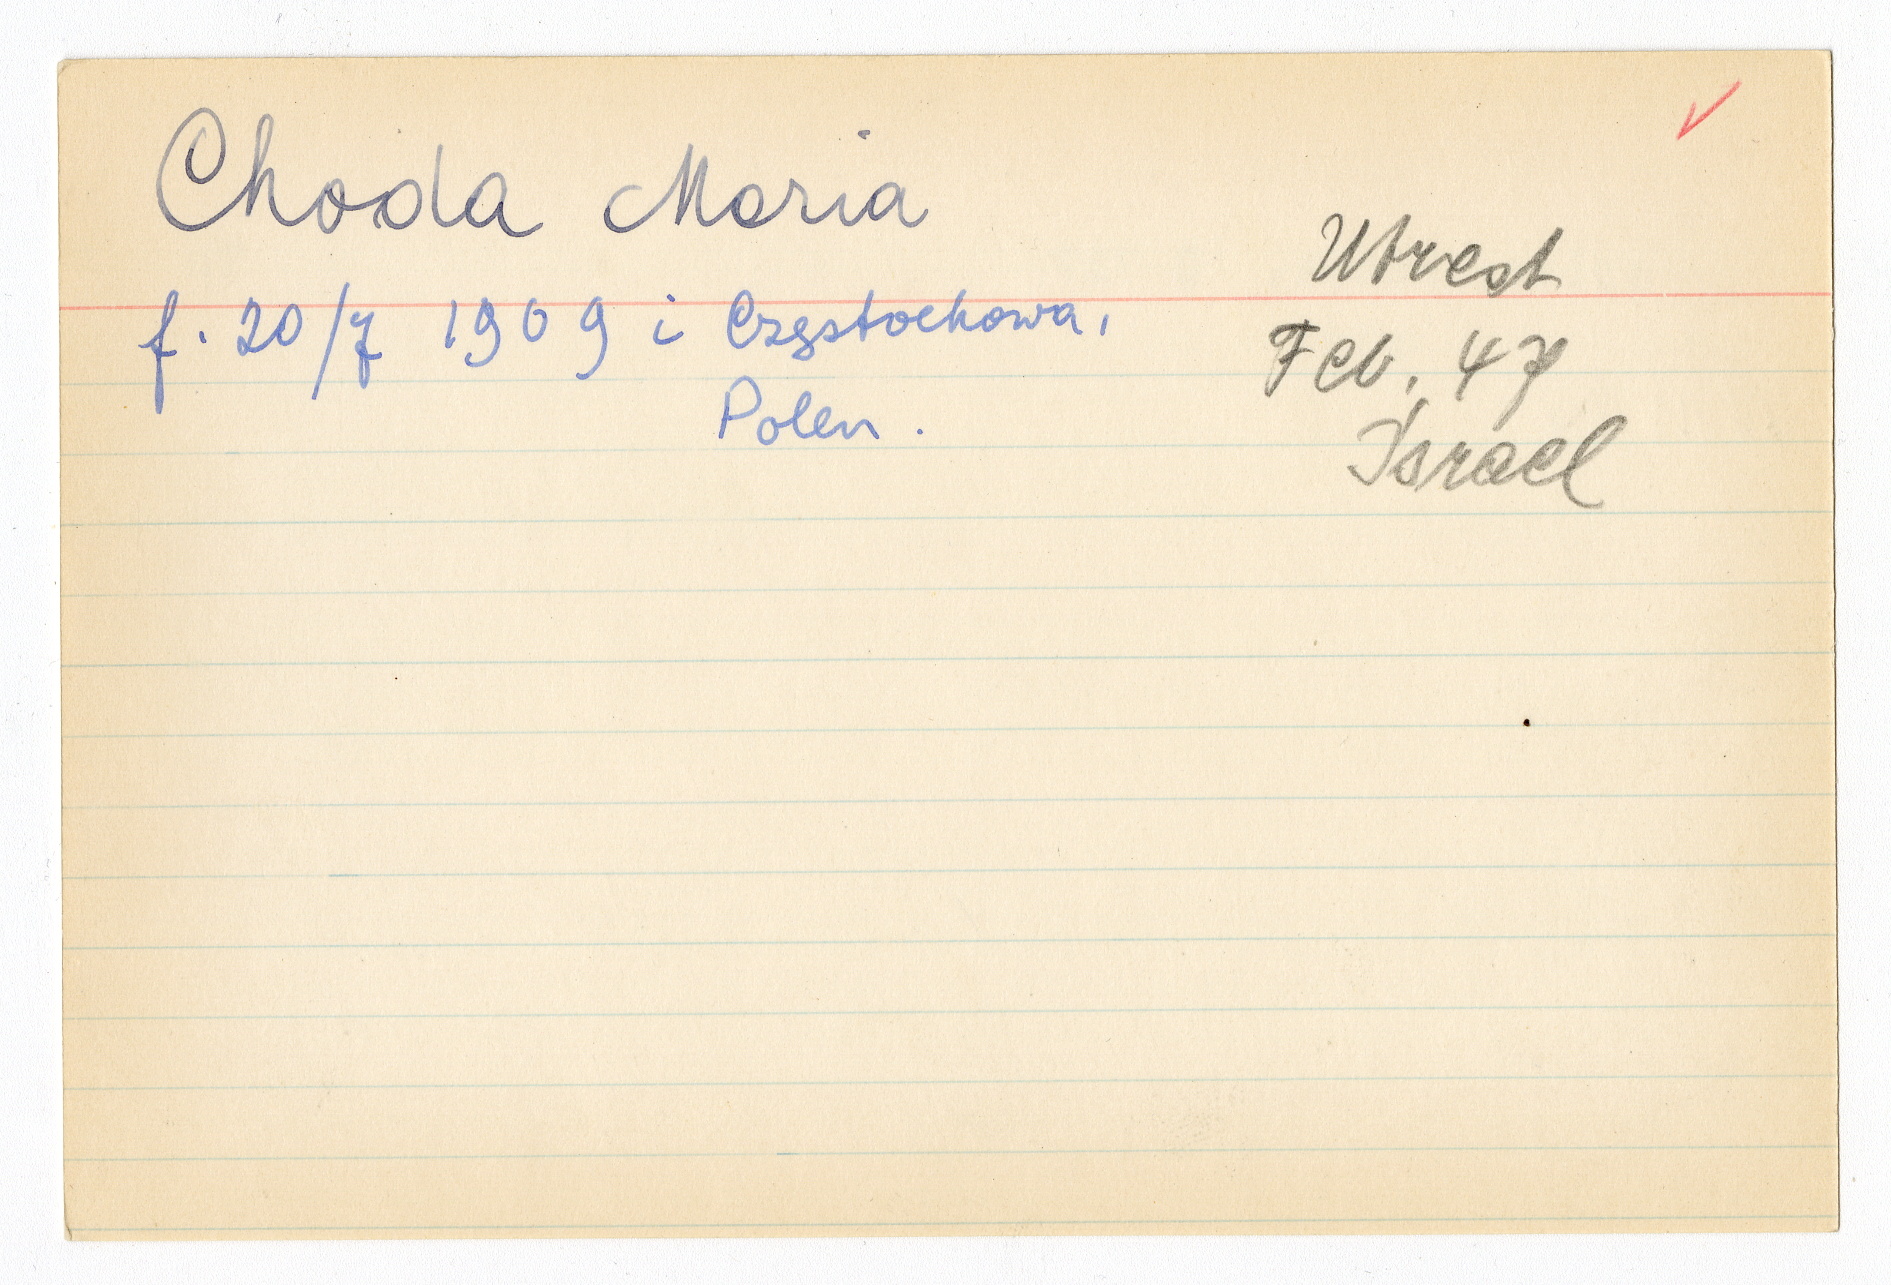 Choda Maria
f. 20/7 1909 i Częstochowa,
Polen.
Utrest
Feb. 47
Israel